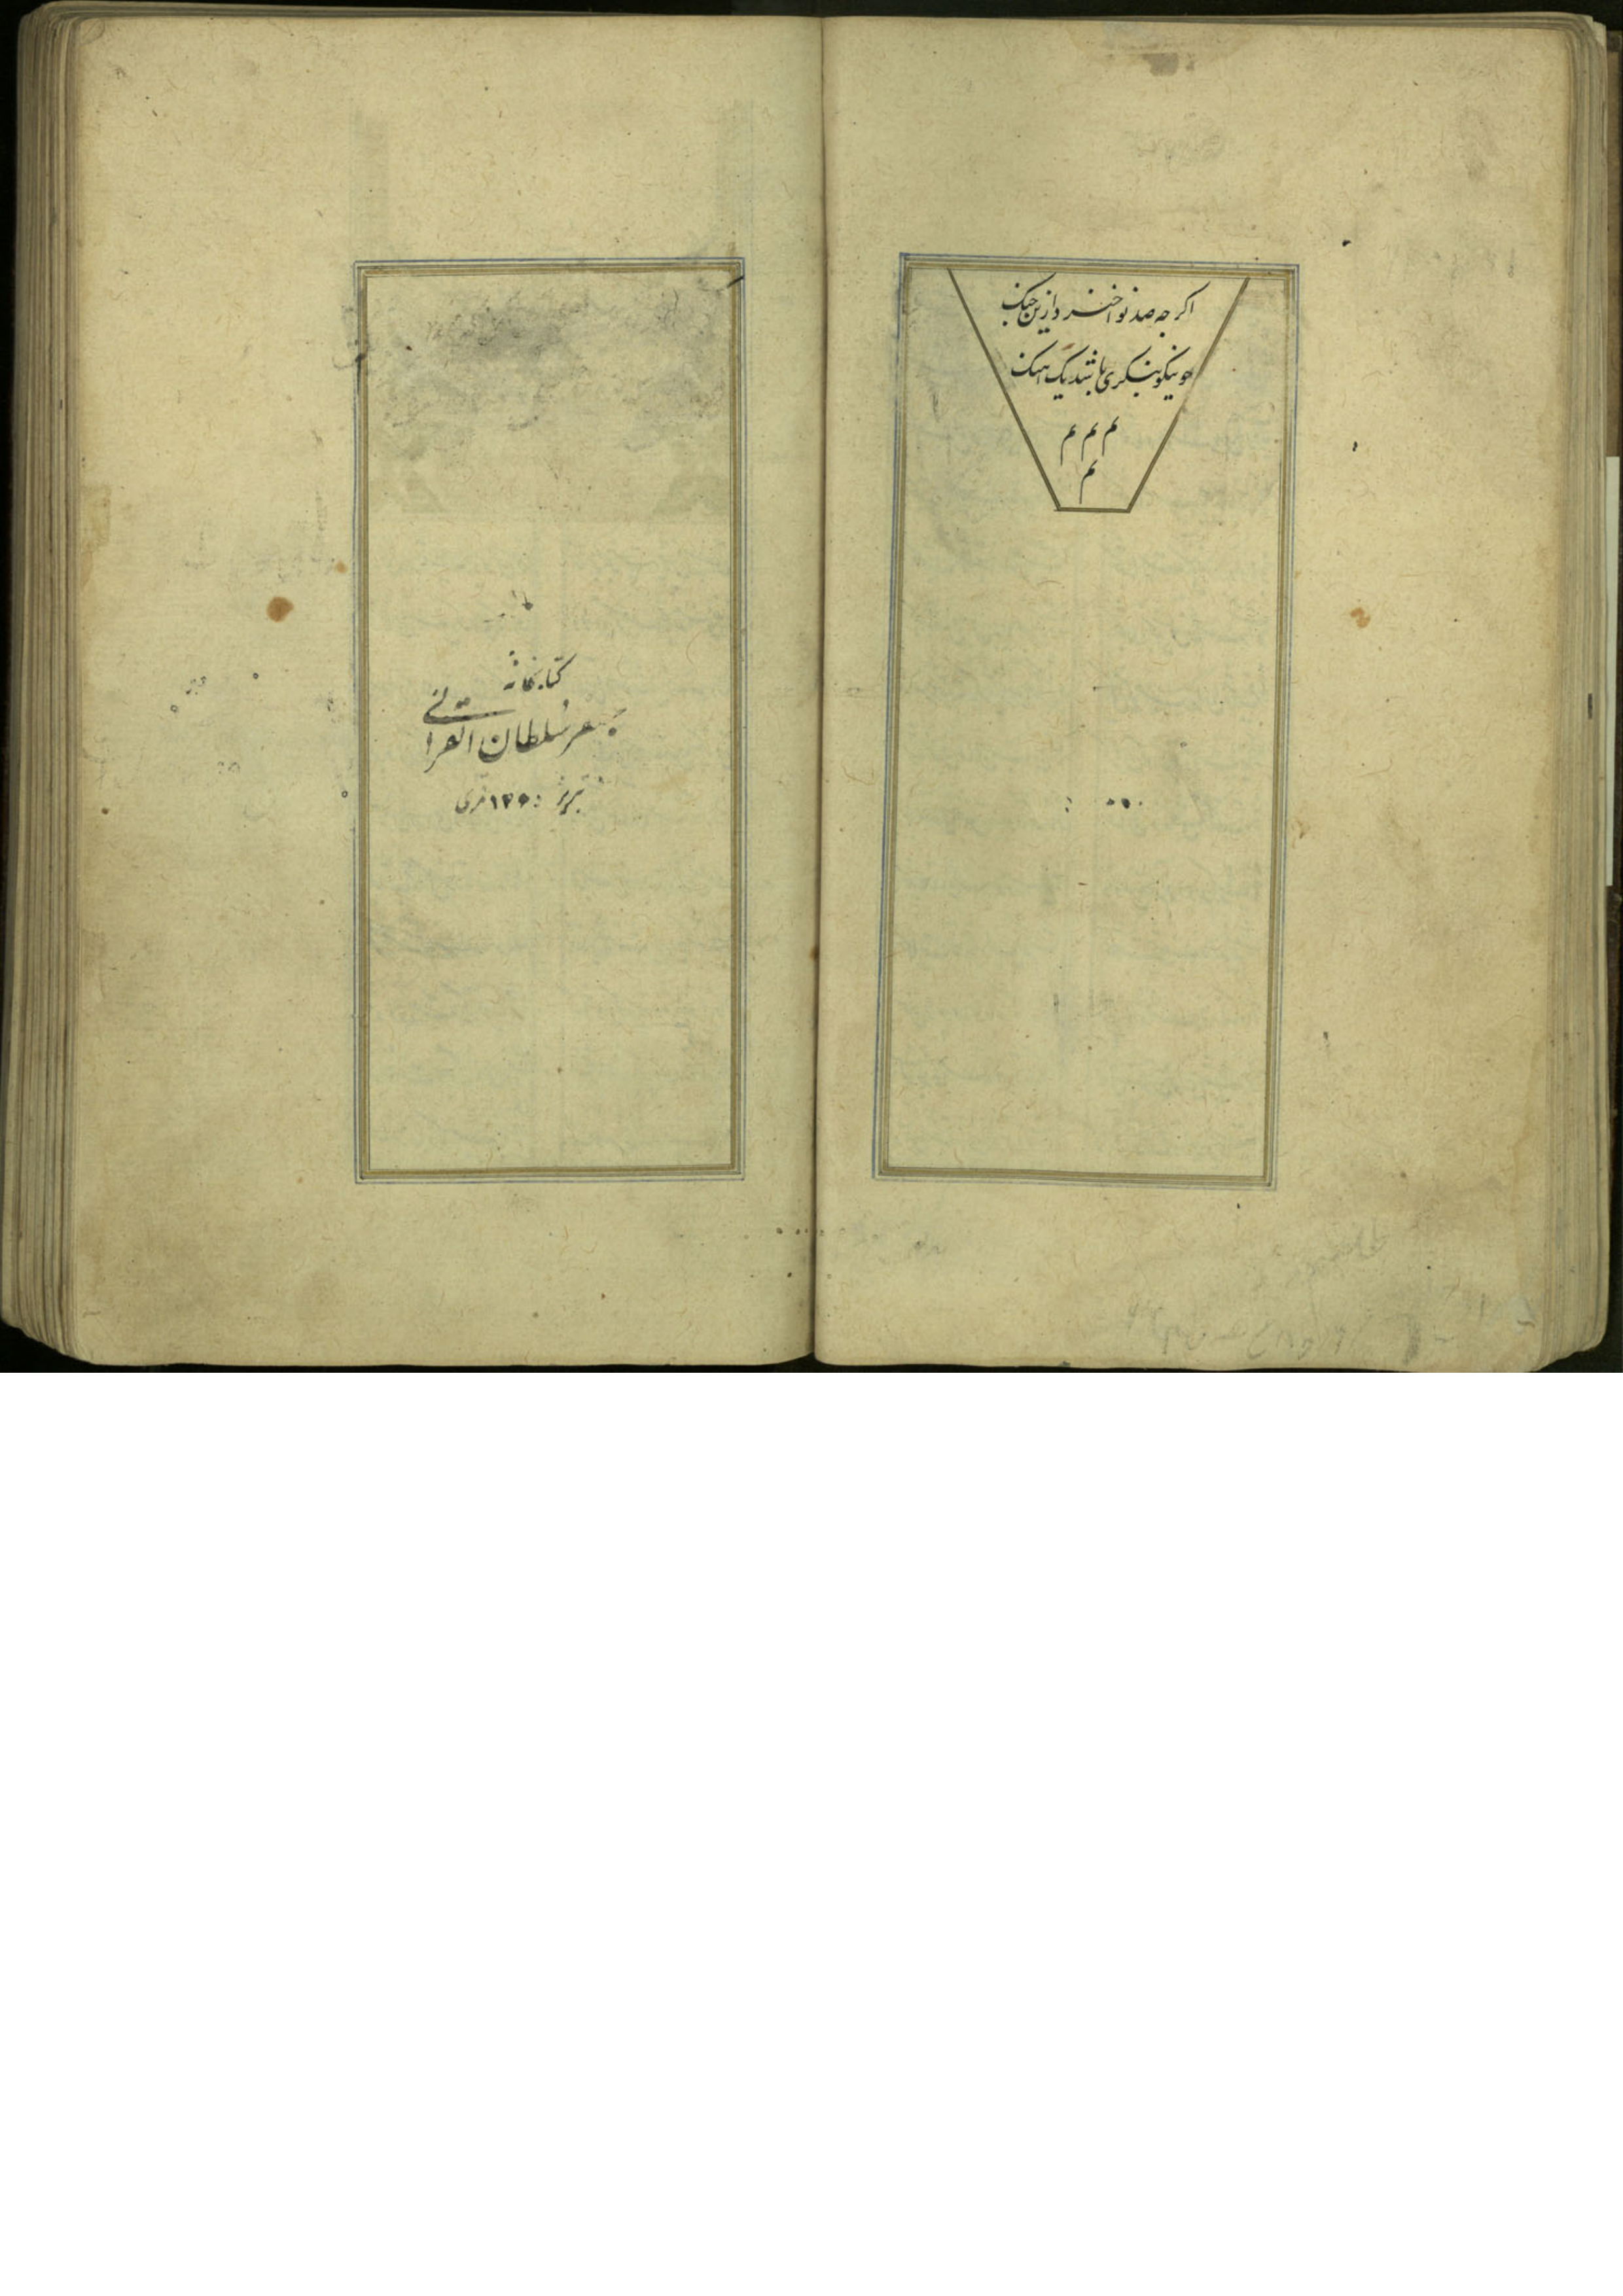 اکر جه صد نوا خیزد ازین جنک
جو نیکو بنکری باشد یک اهنک
م م م
م
کتابخانه
جعفر سلطان القرائی
تبریز ۱۳۶۰ قمری